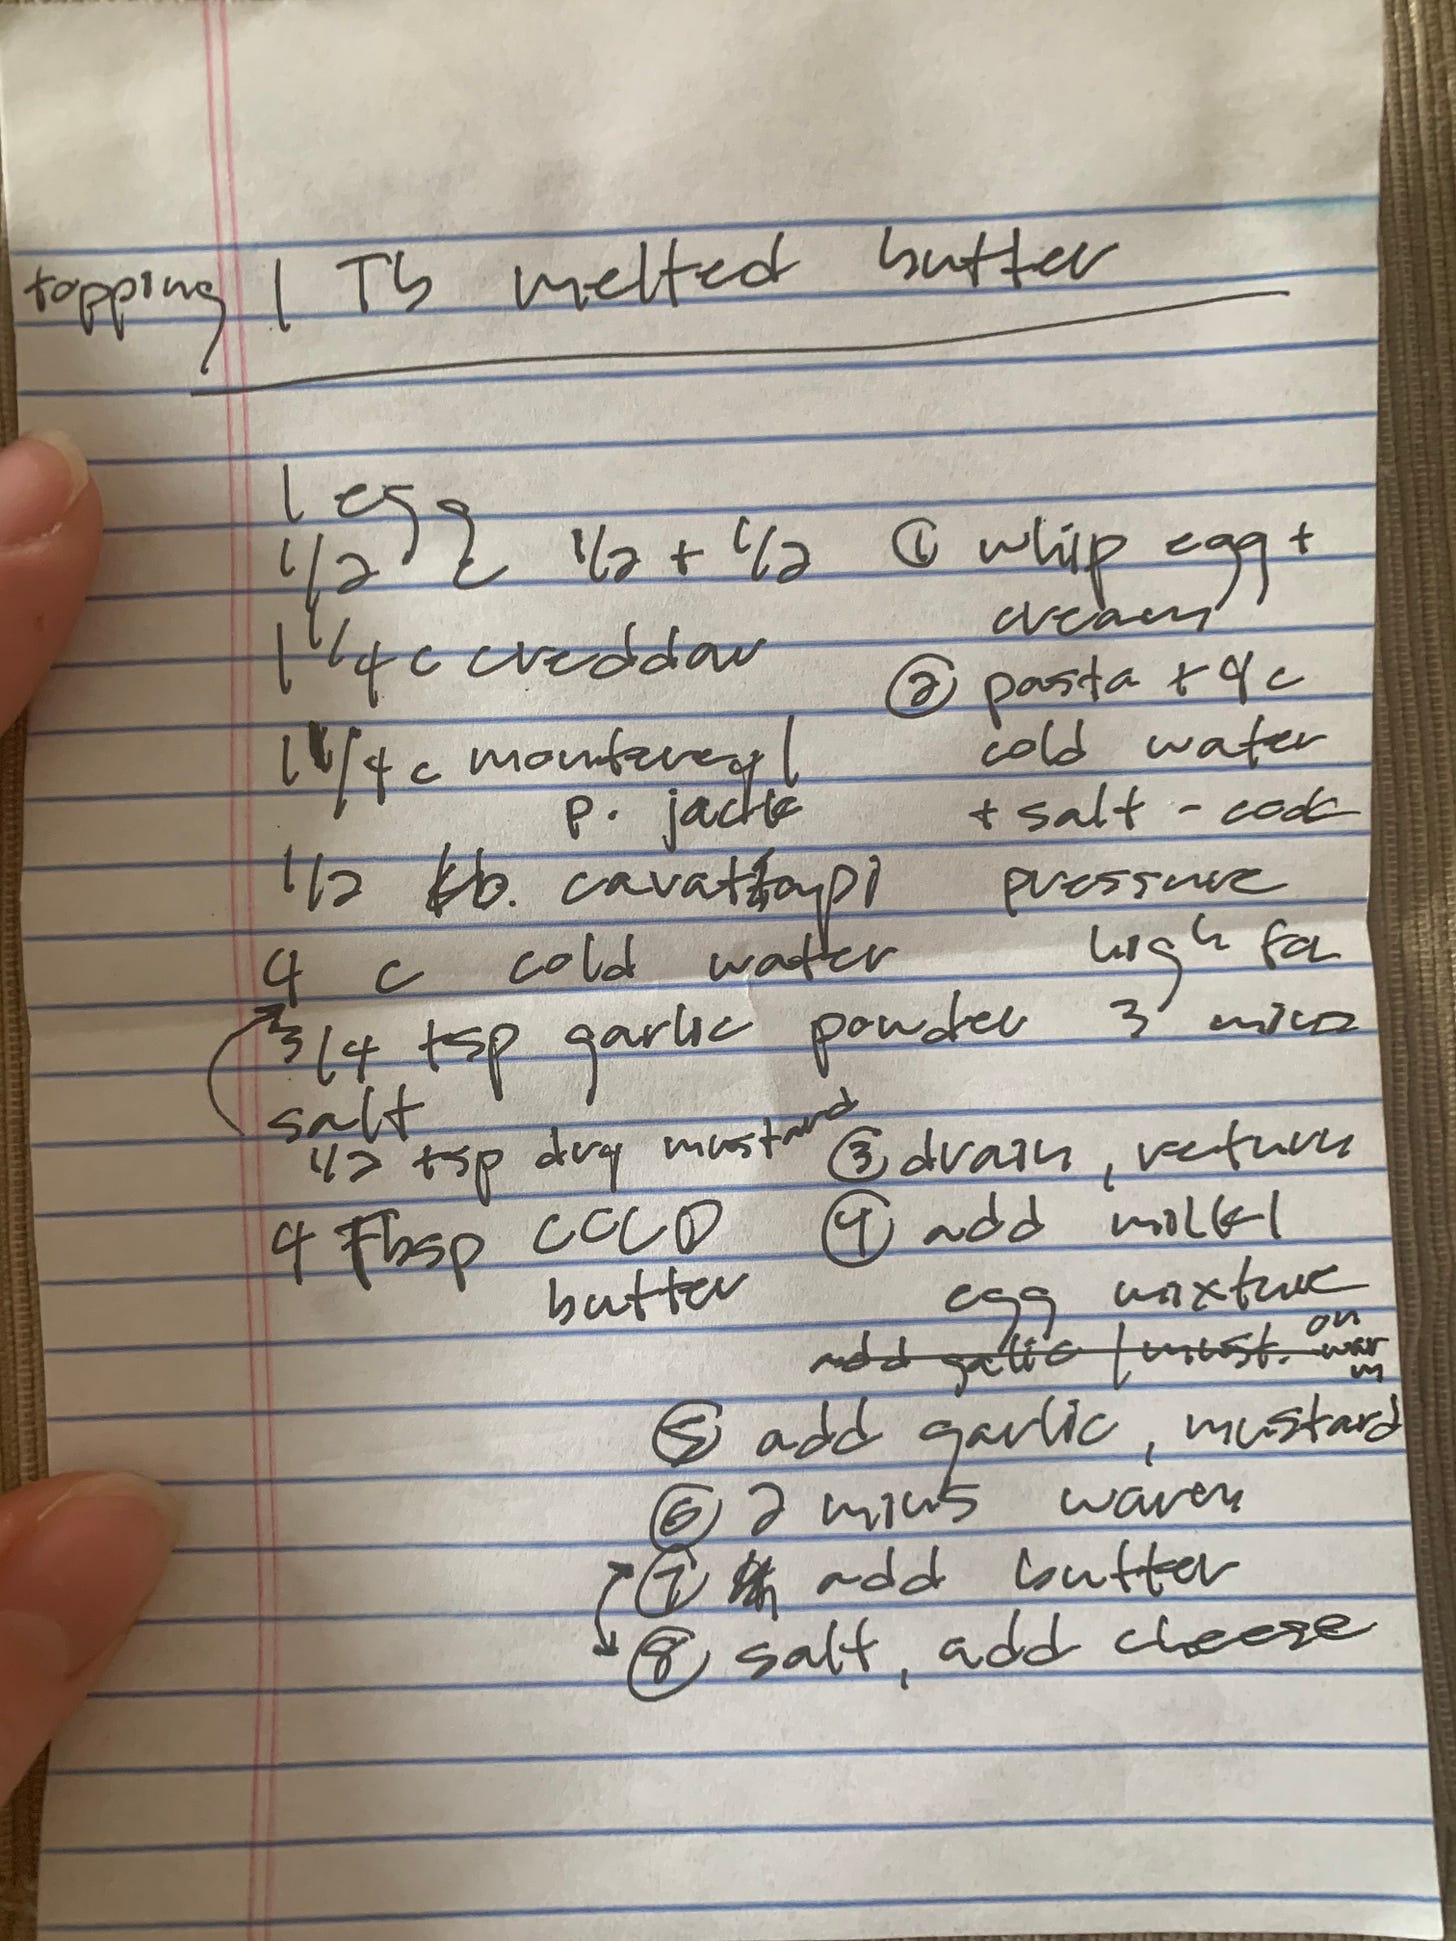 topping 1 Tb melted butter
1 egg
1/2 c 1/2 + 1/2
1 1/4 c creddar
1 1/4 c monterey/
p. jack
1/2 lb. cavattapi
4 c cold water
3/4 tsp garlic powder
salt
1/2 tsp dry mustard
4 Tbsp COLD
butter
① whip egg +
cream
② pasta + 4 c
cold water
+ salt - cook
pressure
high for
3 mins
③ drain, return
④ add milk/
egg mixture
add galic / must. on warm
⑤ add garlic, mustard
⑥ 2 mins warm
⑦ add butter
⑧ salt, add cheese